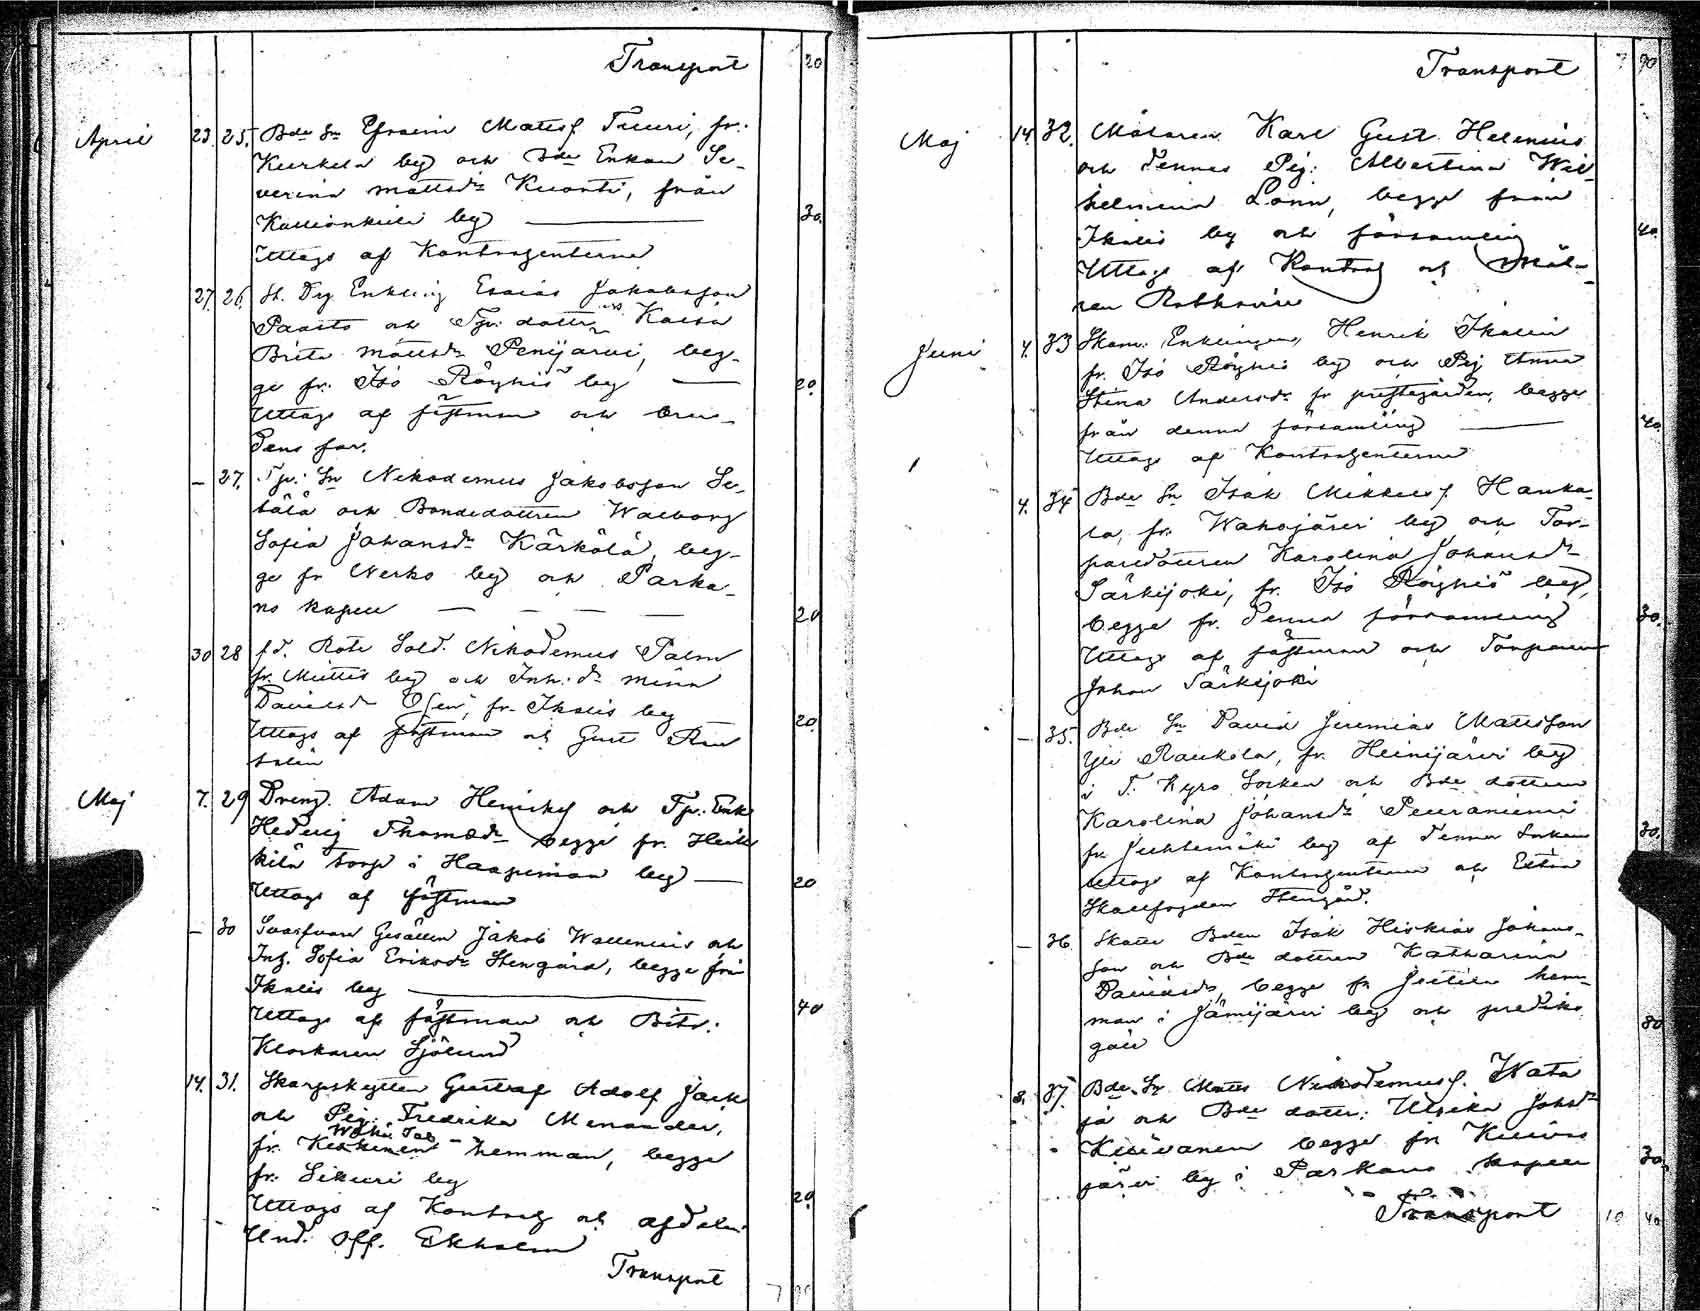 Transport 20
April 23. 25. Bde Sn Efraim Matts. Tuuri, fr.
Kurkela by och Bde Enkan Se-
verina Mattsdr Kuonti, från
by 30.
Uttogs af Kontragenterna
27. 26. St. Drg Enkling Esaias Jakobsson
Paasto och Tpr. dottr Kaisa
Brita Mattsdr Penijärvi, beg-
ge fr. Isö Röyhiö by 20.
Uttogs af fästman och bru-
dens far.
— 27. Tpr. Sn Nikodemus Jakobsson Se-
tälä och Bondedottren Walborg
Sofia Johansdr Kärkölä, beg-
ge fr Nerko by och Parka-
no kapell — — — — 20
30 28 f.d. Rote Sold. Nikodemus Palm
fr. Miettis by och Inh. dr Mina
Davidsdr, fr. Ikalis by 20.
Uttogs af fästman och Gust
Maj 7. 29 Dreng. Adam Henriks. och Tpr. Enk
Hedvig Thomædr begge fr. Heik
kilä torp i Haapimaa by — 20
Uttogs af fästman
— 30 Svarfvare Gesällen Jakob Wallenius och
Inh. Sofia Eriksdr Stengård, begge från
Ikalis by 40
Uttogs af fästman och Bitr.
Klockaren Sjölund
14. 31. Skarpskytten Gustaf Adolf Jack
och Pig. Fredrika Menander,
fr. hemman, begge
fr. Sikuri by 20
Uttogs af Kontrag och afdeln.
Und. Off. Ekholm
Transport 7 90
Transport 7 90
Maj 14. 32. Målaren Karl Gust. Helenius
och dennes Pig. Albertina Wil-
helmina Lönn, begge från
Ikalis by och församling 40.
Uttogs af Kontrag och Måla-
ren
Juni 4. 33 Skom. Enklingen, Henrik Ikalin
fr. Isö Röyhiö by och Pig Anna
Stina Andersdr fr prestegården, begge
från denna församling 40.
Uttogs af Kontragenterna
4. 34 Bde Sn Isak Mikkels. Hanka-
la, fr. Wahojärvi by och Tor-
paredottren Karolina Johansdr
Särkijoki, fr. Isö Röyhiö by,
begge fr. denna församling 30.
Uttogs af fästman och Torparen
Johan Särkijoki
— 35. Bde Sn David Jeremias Mattsson
Yli Raukola, fr. Heinijärvi by
i T. Kyro Socken och Bde dottren
Karolina Johansdr Peuraniemi
fr. Juhtimäki by af denna Socken 30.
Uttogs af Kontragenterna och
Skallfogden Stengård.
— 36. Skatte Bden Isak Hiskias Johans-
son och Bde dottren Katharina
Davidsdr, begge fr Juttila hem-
man i Jämijärvi by och prediko
gäll 80
8. 37. Bde Sn Matts Nikodemus. Wata
jä och Bde dottr. Ulrika Johsdr
Kuivanen begge fr Kuivas
järvi by i Parkano kapell 30.
Transport 10 40